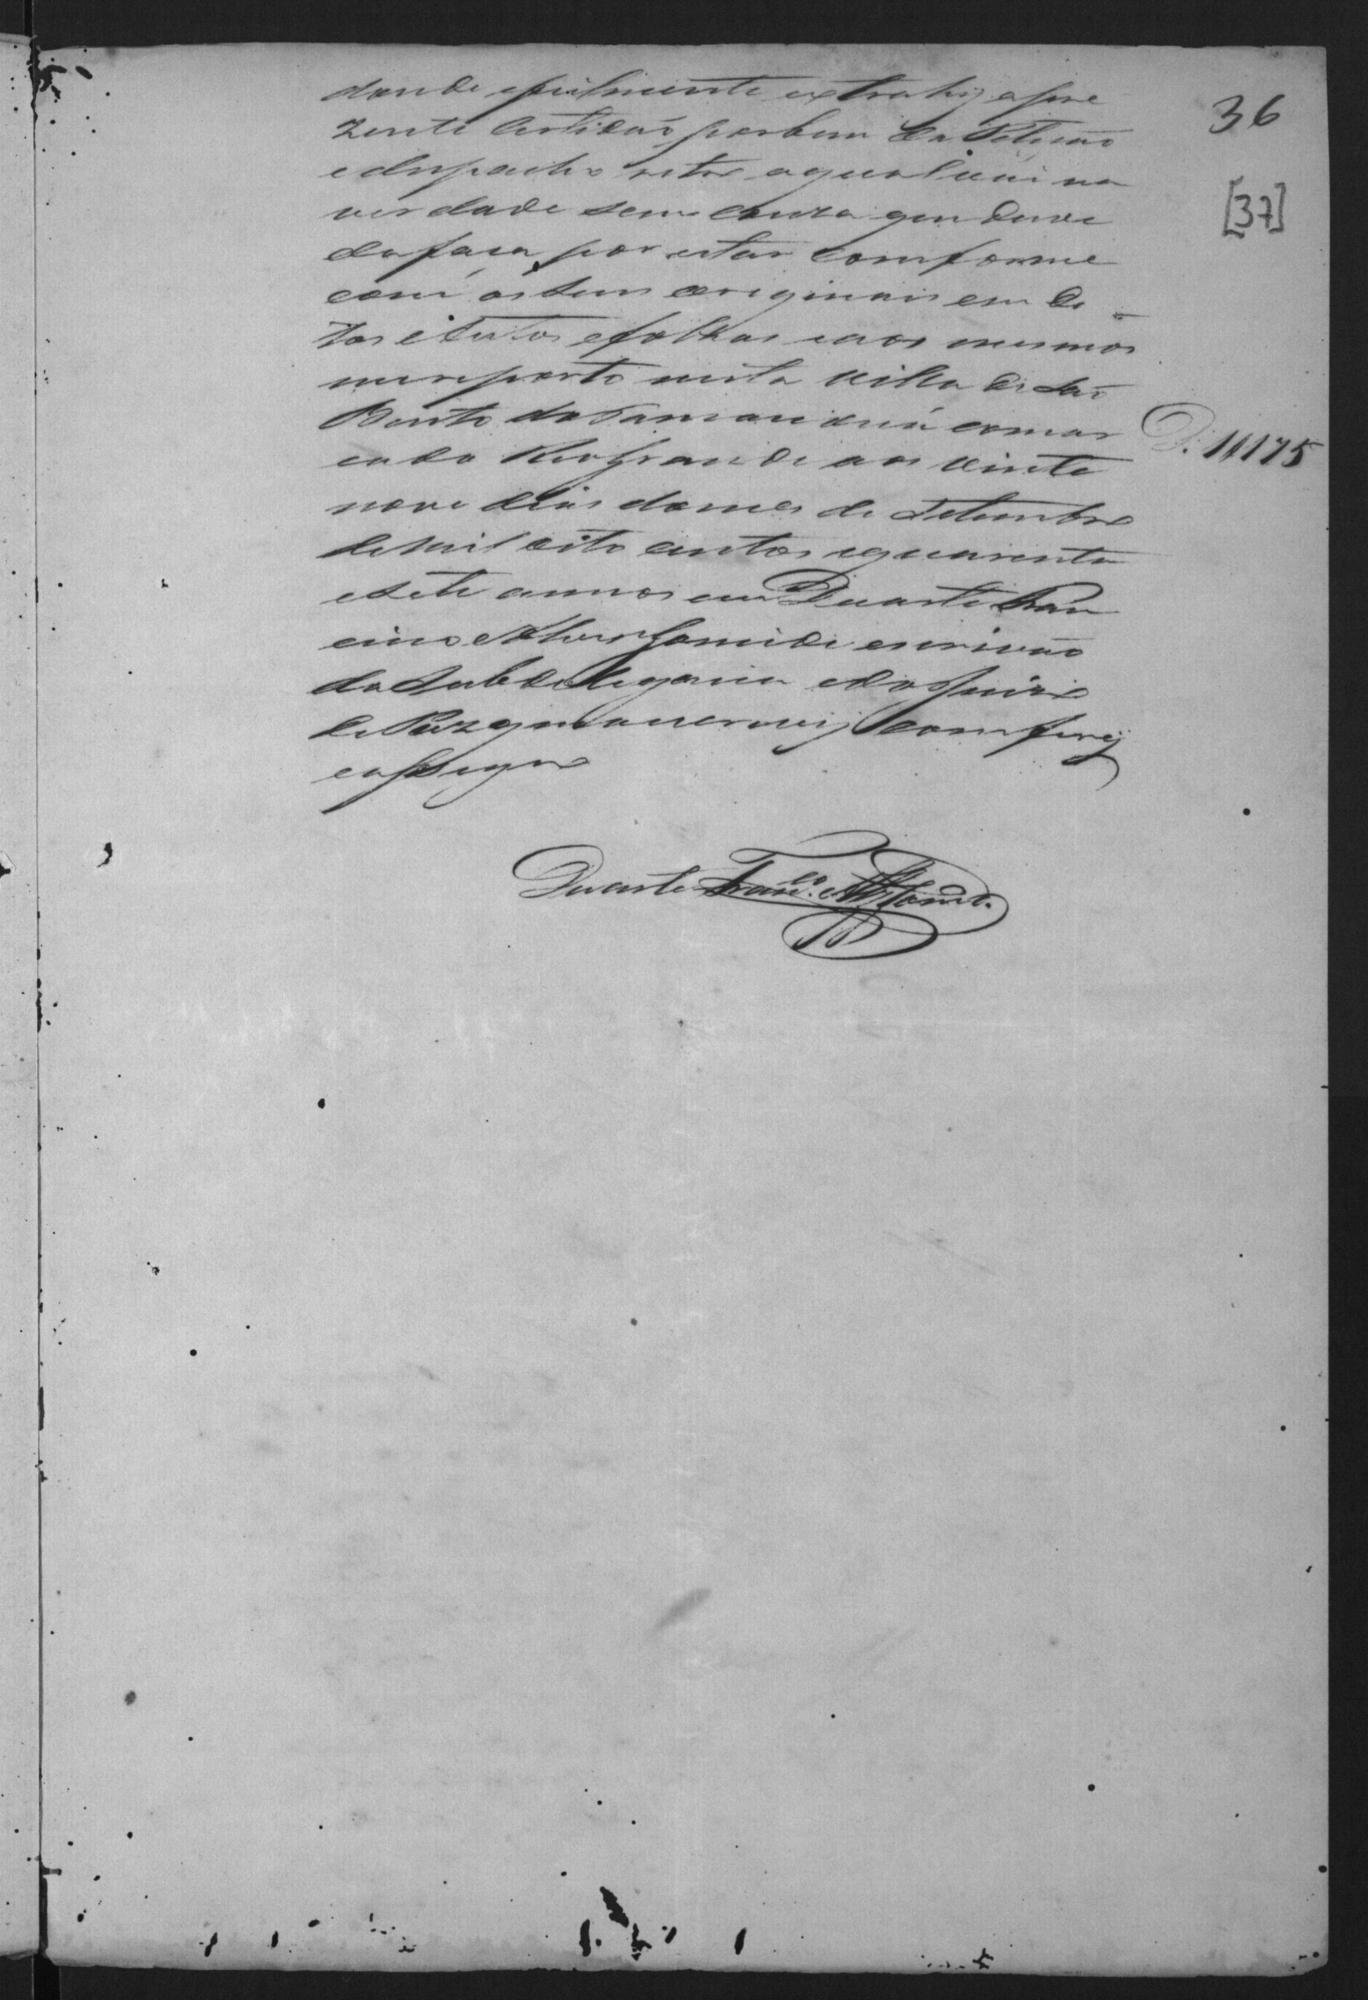 36
[37]
donde fielmente extrahy apre
zente Certidaõ por bem da Petição
e despacho retro a qual vai na
verdade sem couza que duvi
da faça por estar comforme
com os seus originais em di
tos autos e folhas e aos mesmos
me reporto nesta Villa de São
Bento do Tamanduá comar
ca do Rio grande aos vinte
nove dias do mes de Setembro
de mil oito centos e quarenta
e sete annos eu Duarte Fran
cisco Lamide escrivão
da Subdelegacia e do Juizo
de Paz que a escrevij comferij
e assigno
D. 11175
Duarte Franc.º Lamd.